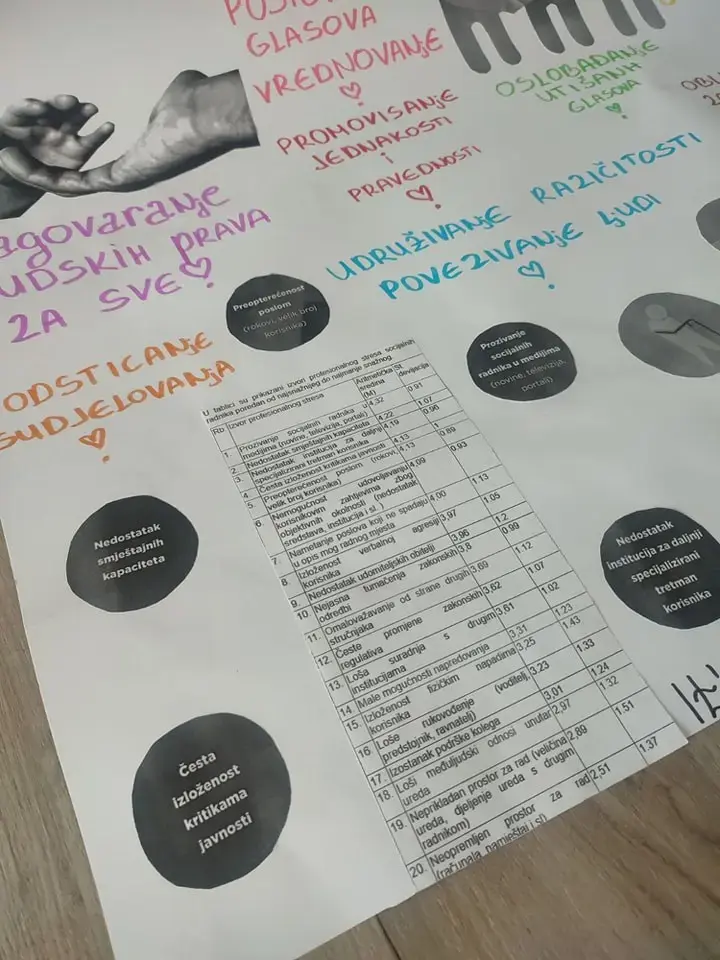 GLASOVA
VREDNOVANJE
PROMOVISANJE
JEDNAKOSTI
i
PRAVEDNOSTI
OSLOBAĐANJE
UTIŠANIH
GLASOVA
UDRUŽIVANJE RAZIČITOSTI
POVEZIVANJE LJUDI
PRAVA
ZA SVE
SUDJELOVANJA
Preopterećenost
poslom
(rokovi, velik broj
korisnika)
Prozivanje
socijalnih
radnika u medijima
(novine, televizija,
portali)
Nedostatak
smještajnih
kapaciteta
Nedostatak
institucija za daljnji
specijalizirani
tretman
korisnika
Česta
Izloženost
kritikama
javnosti
U tablici su prikazani izvori profesionalnog stresa socijalnih
radnika poredan od najsnažnijeg do najmanje snažnog.
Rb Izvor profesionalnog stresa Aritmetička sredina (M) St. devijacija
1. Prozivanje socijalnih radnika u
medijima (novine, televizija, portali) 4,32 0.91
2. Nedostatak smještajnih kapaciteta 4,22 1.07
3. Nedostatak institucija za daljnji
specijalizirani tretman korisnika 4,19 0.96
4. Česta izloženost kritikama javnosti 4,13 1
5. Preopterećenost poslom (rokovi,
velik broj korisnika) 4,13 0.89
6. Nemogućnost udovoljavanju
korisnikovim zahtjevima zbog
objektivnih okolnosti (nedostatak
sredstava, institucija i sl.) 4,09 0.93
7. Nametanje poslova koji ne spadaju
u opis mog radnog mjesta 4,00 1.13
8. Izloženost verbalnoj agresiji
korisnika 3,97 1.05
9. Nedostatak udomiteljskih obitelji 3,96 1.2
10 Nejasna tumačenja zakonskih
odredbi 3,8 0.99
11. Omalovažavanje od strane drugih
stručnjaka 3,69 1.12
12. Česte promjene zakonskih
regulativa 3,62 1.07
13. Loša suradnja s drugim
institucijama 3,61 1.02
14 Male mogućnosti napredovanja 3,31 1.23
15. Izloženost fizičkim napadima
korisnika 3,25 1.43
16. Loše rukovođenje (voditelj,
predstojnik, ravnatelj) 3,23 1.33
17. Izostanak podrške kolega 3,01 1.24
18. Loši međuljudski odnosi unutar
ureda 2,97 1.32
19. Neprikladan prostor za rad (veličina
ureda, dijeljenje ureda s drugim
radnikom) 2,89 1.51
20. Neopremljen prostor za rad
(računala, namještaj i sl) 2,51 1.37